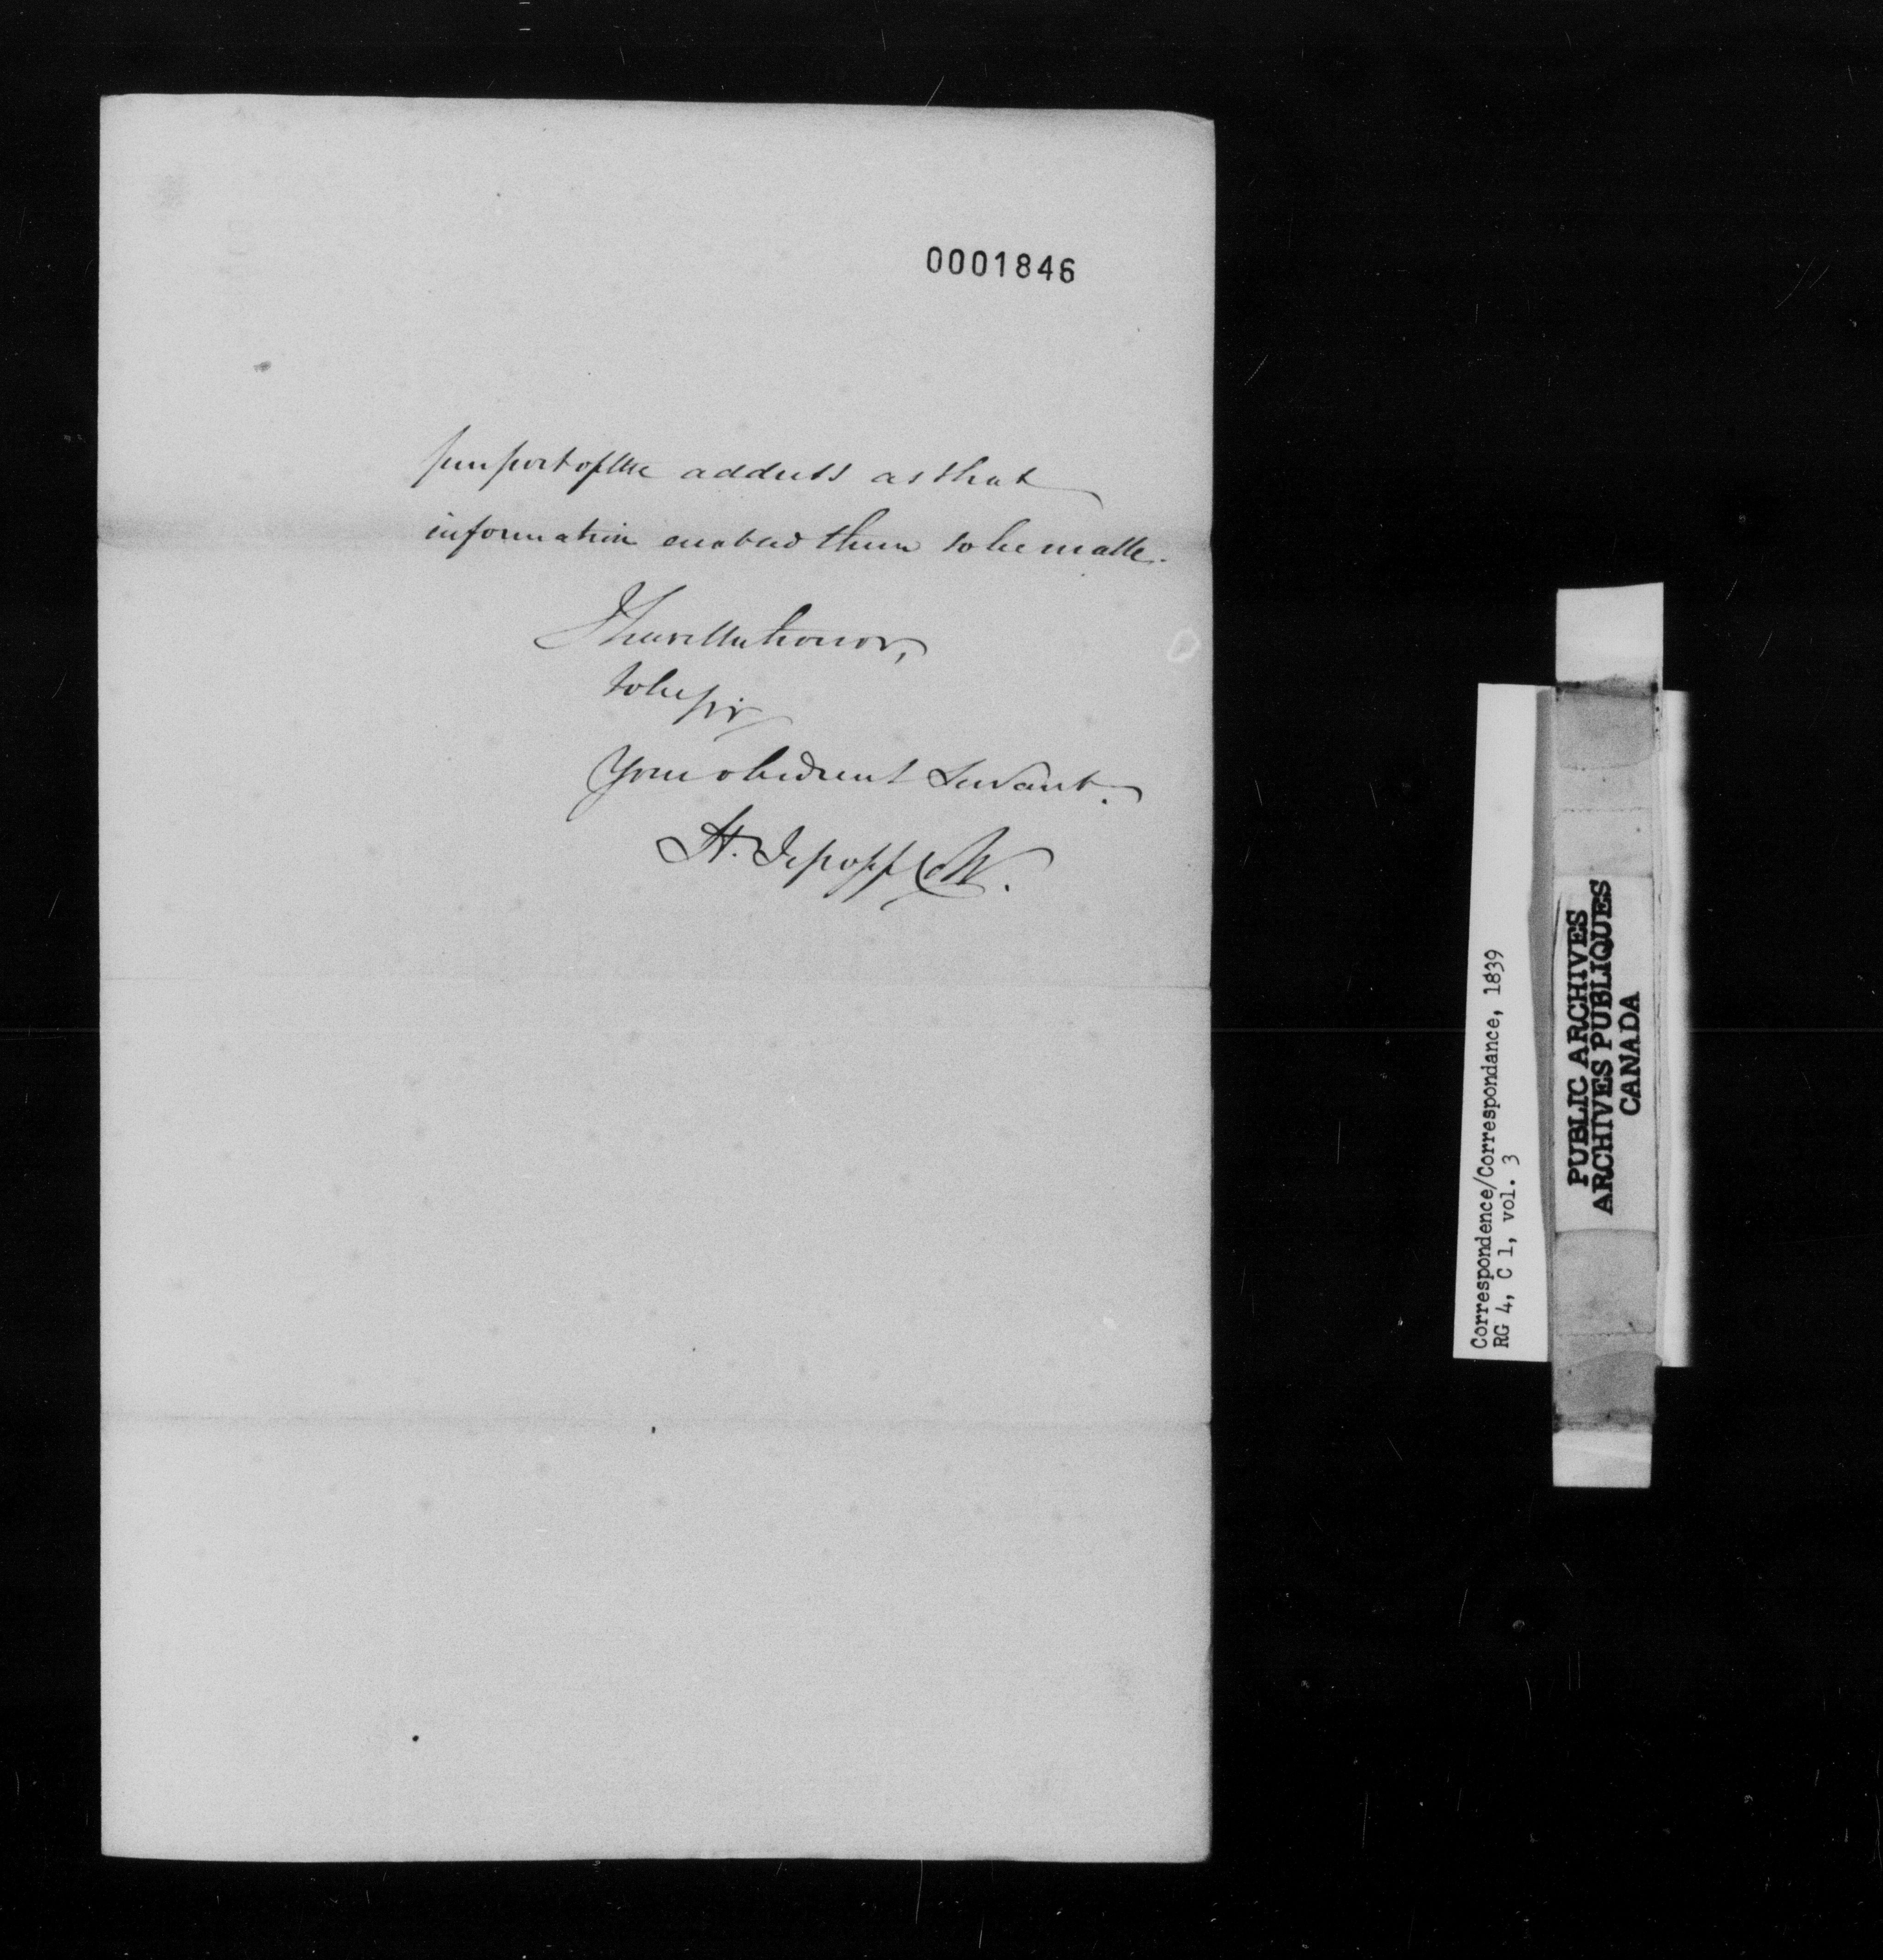 0001846
purport of the address as that
information enabled them to be made.
I have the honor,
to be Sir
Your obedient Servant.
H. Jesopp
Correspondence/Correspondance, 1839
RG 4, C 1, vol. 3
PUBLIC ARCHIVES
ARCHIVES PUBLIQUES
CANADA